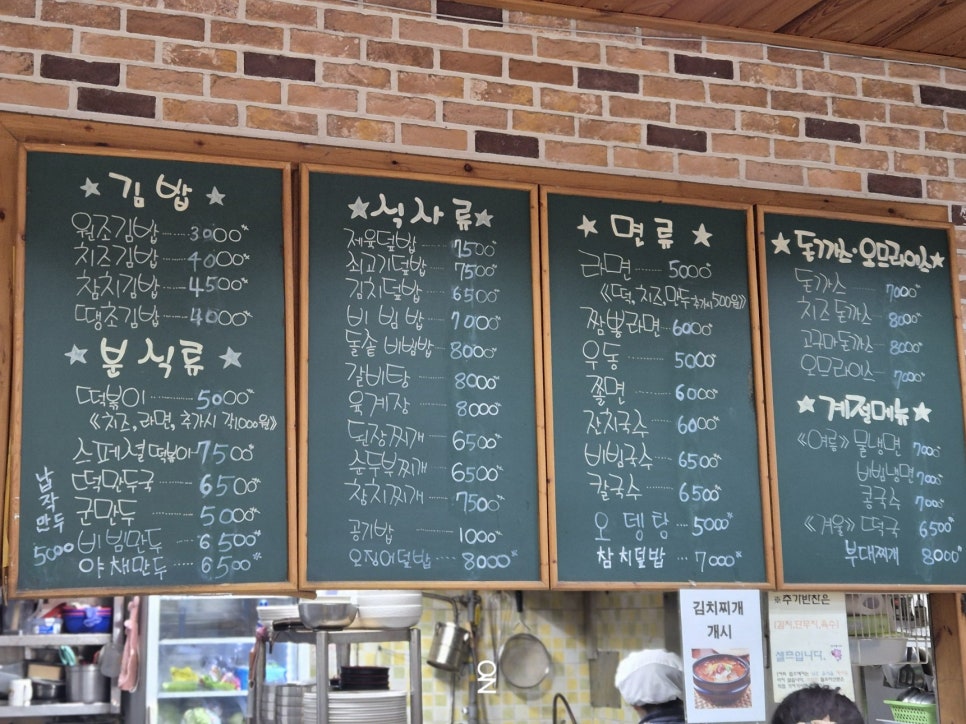 ★김밥★
원조김밥 ······ 3000원
치즈김밥 ······ 4000원
참치김밥 ······ 4500원
땡초김밥 ······ 4000원
★분식류★
떡볶이 ······ 5000원
《치즈, 라면, 추가시 각1000원》
스페셜떡볶이 7500원
떡만두국 ······ 6500원
군만두 ······ 5000원
비빔만두 ··· 6500원
야채만두 ···· 6500원
납작만두 5000
★식사류★
제육덮밥 ······ 7500원
쇠고기덮밥 ······ 7500원
김치덮밥 ······ 6500원
비빔밥 ······ 7000원
돌솥비빔밥 ··· 8000원
갈비탕 ······ 8000원
육계장 ······ 8000원
된장찌개 ······ 6500원
순두부찌개 ······ 6500원
참치찌개 ······ 7500원
공기밥 ······ 1000원
오징어덮밥 ······ 8000원
★면류★
라면 ······ 5000원
《떡,치즈,만두 추가시500원》
짬뽕라면 ··· 6000원
우동 ······ 5000원
쫄면 ······ 6000원
잔치국수 ··· 6000원
비빔국수 ··· 6500원
칼국수 ··· 6500원
오뎅탕 ··· 5000원
참치덮밥 ··· 7000원
★돈까스·오므라이스★
돈까스 ······ 7000원
치즈돈까스 ··· 8000원
고구마돈까스 ··· 8000원
오므라이스 ··· 7000원
★계절메뉴★
《여름》 물냉면 7000원
비빔냉면 7000원
콩국수 7000원
《겨울》 떡국 6500원
부대찌개 8000원
김치찌개
개시
※추가반찬은
(김치,단무지,육수)
셀프입니다.
NO